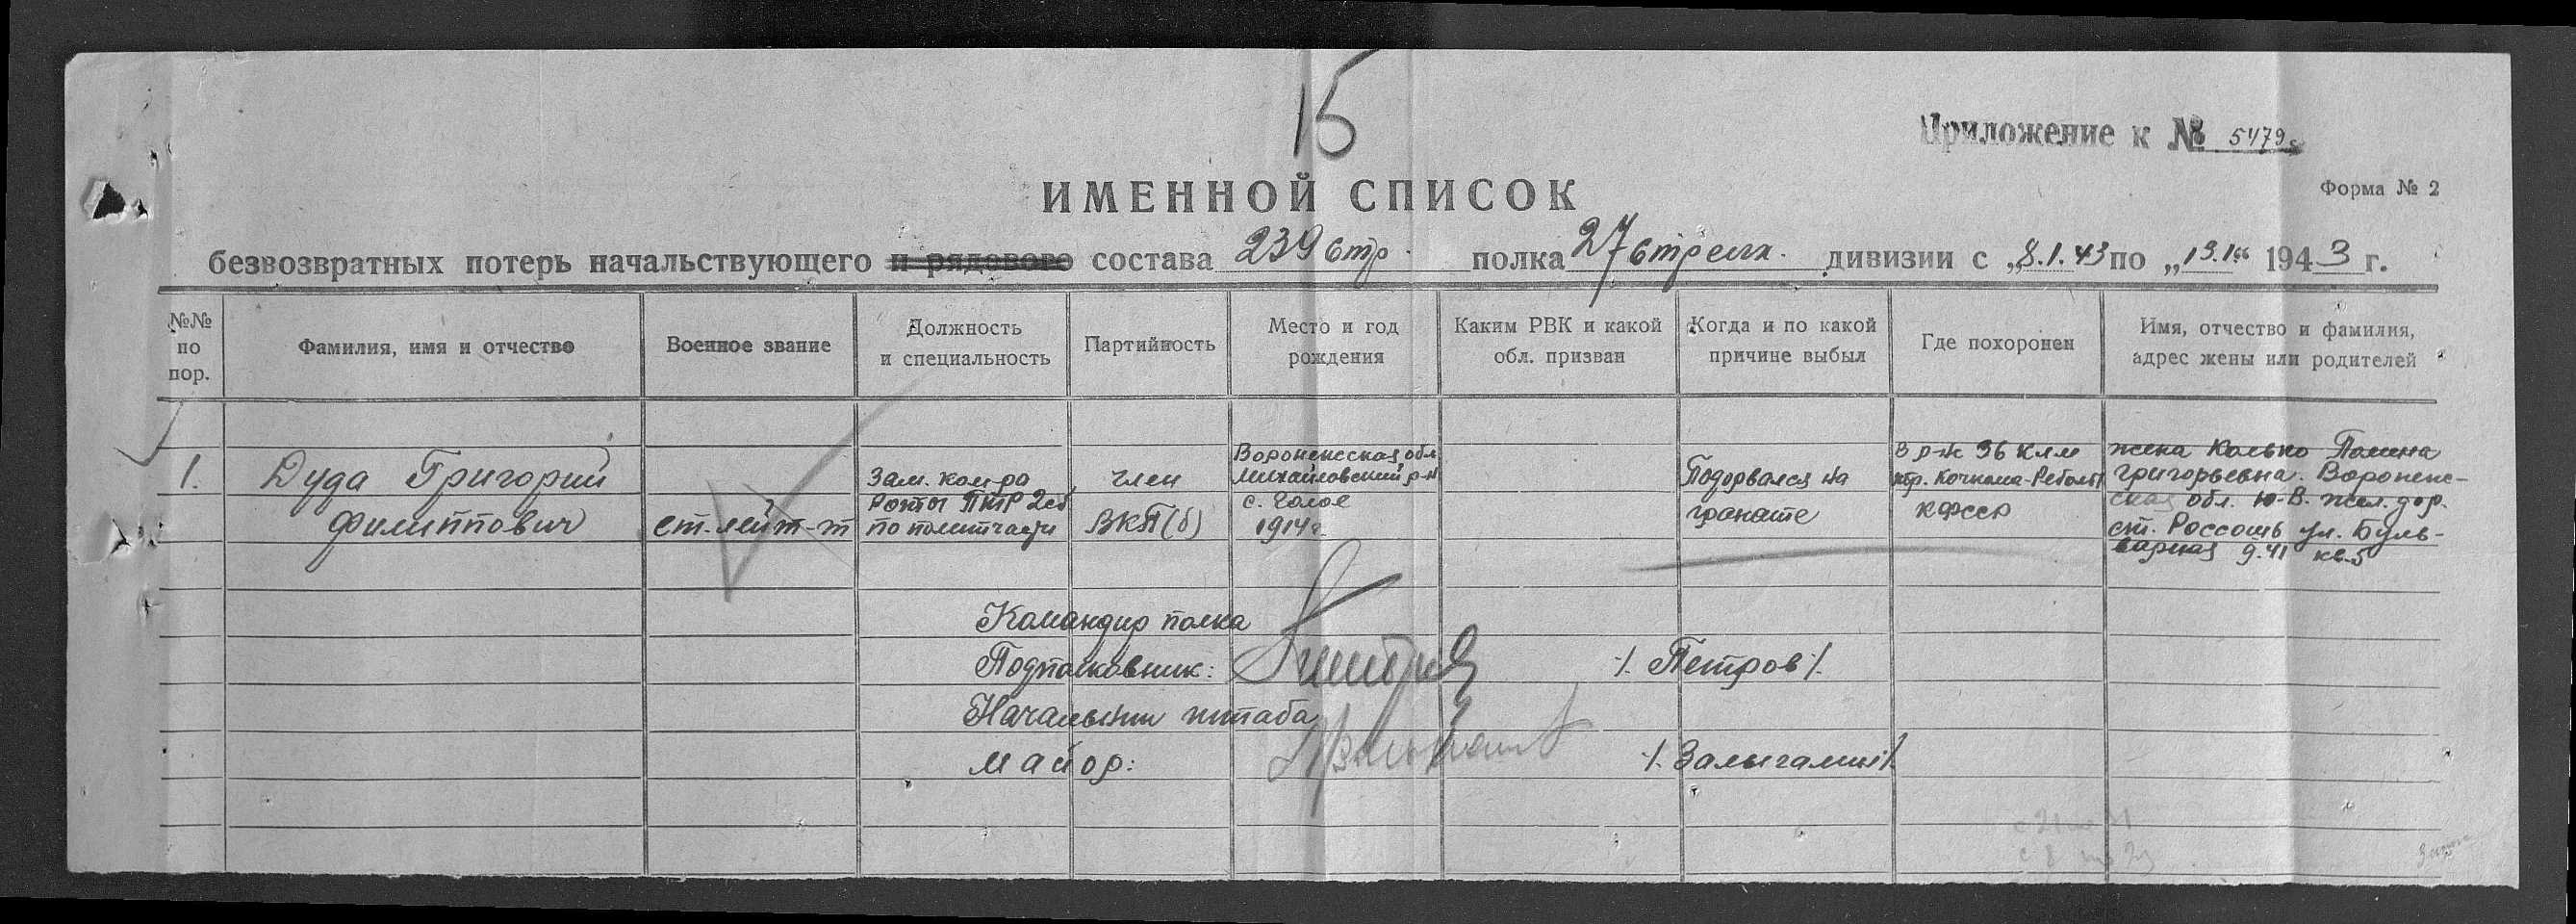 15
Приложение к № 5479с
Форма № 2
ИМЕННОЙ СПИСОК
безвозвратных потерь начальствующего и рядового состава 239 стр. полка 27 стрелк. дивизии с „8.1.43 по „13.1“ 1943 г.
№№ по пор.
Фамилия, имя и отчество
Военное звание
Должность и специальность
Партийность
Место и год рождения
Каким РВК и какой обл. призван
Когда и по какой причине выбыл
Где похоронен
Имя, отчество и фамилия, адрес жены или родителей
1.
Дуда Григорий
Филиппович
ст. лейт-т
Зам. ком-ра
роты ПТР 2сб
по политчасти
член
ВКП(б)
Воронежская обл.
Михайловский р-н
с. Голое
1914г.
Подорвался на
гранате
В р-не 36 клм
Кочкома-Реболы
КФССР
жена Колько Полина
Григорьевна. Воронеж-
ская обл. Ю-В. жел. дор.
ст. Россошь ул. Буль-
варная д.41 кв.5
Командир полка
Подполковник: /. Петров/.
Начальник штаба
майор: /.